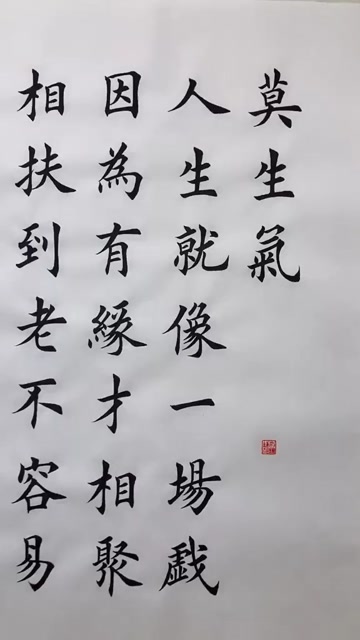 莫生氣
人生就像一場戯
因為有緣才相聚
相扶到老不容易